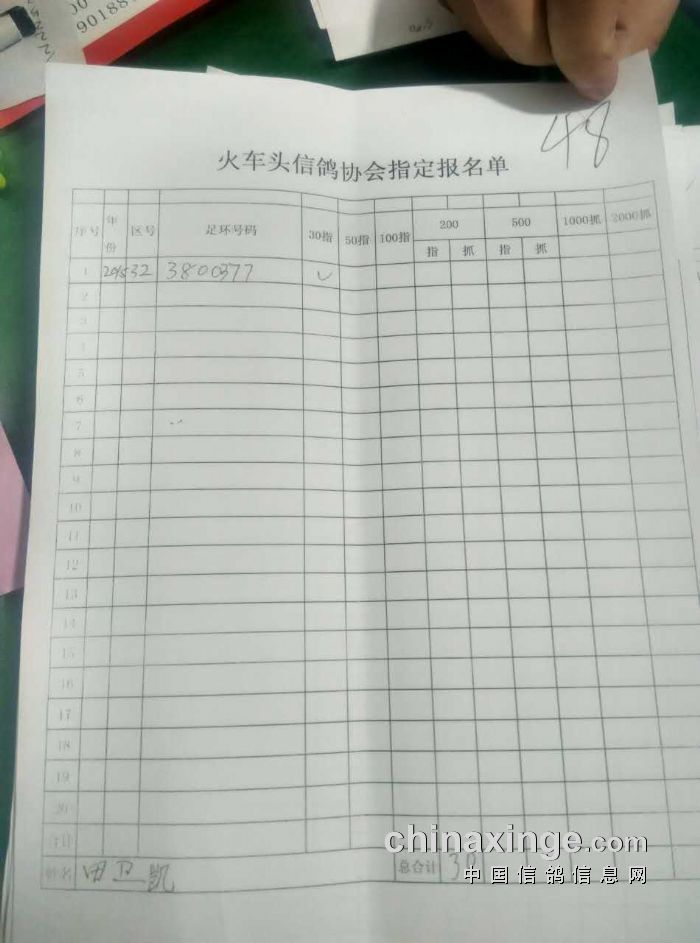 90188
48
火车头信鸽协会指定报名单
序号 年份 区号 足环号码 30指 50指 100指 200 500 1000抓 2000抓
指 抓 指 抓
1 2015 32 3800377 ✓
2
3
4
5
6
7
8
9
10
11
12
13
14
15
16
17
18
19
20
合计
姓名 田卫凯 总合计 30
chinaxinge.com
中国信鸽信息网